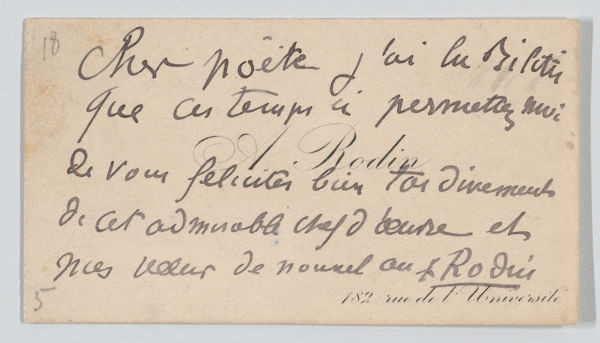 18
Cher poëte j'ai lu Bilitis
que ces temps ci permettez moi
A. Rodin
de vous feliciter bien tardivement
de cet admirable chef d'œuvre et
mes vœux de nouvel an Rodin
182, rue de l'Université
5